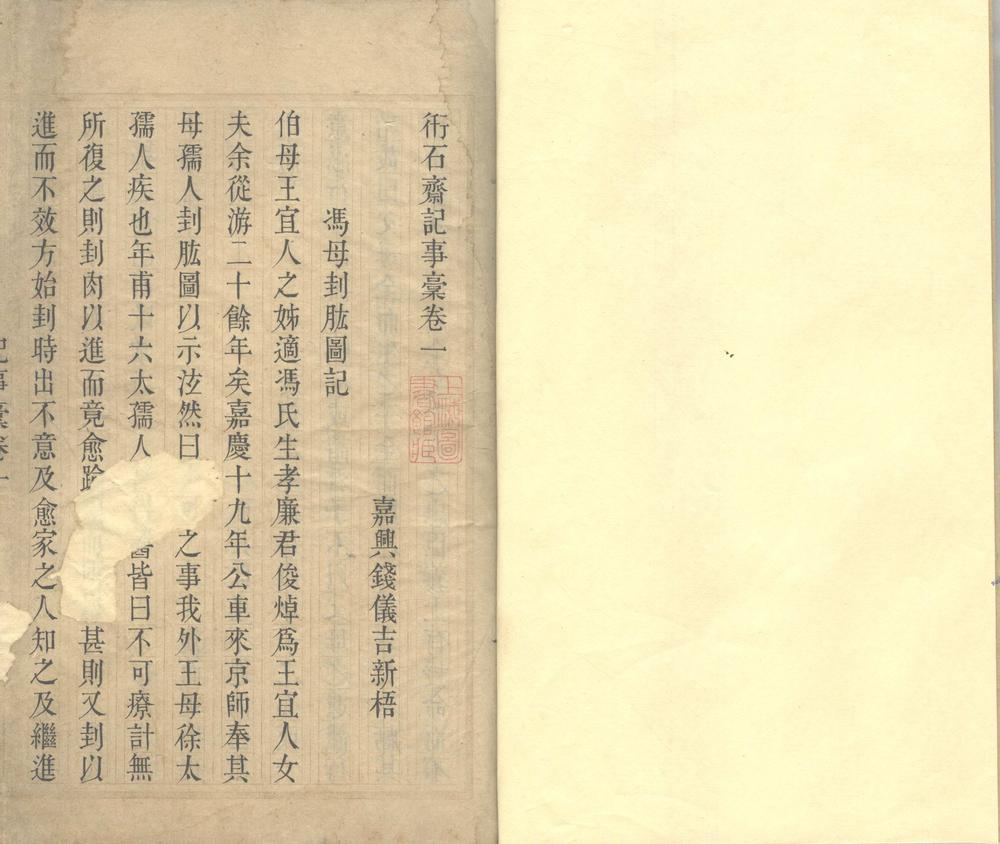 衎石齋記事稾卷一
嘉興錢儀吉新梧
馮母刲肱圖記
伯母王宜人之姊適馮氏生孝廉君俊焯爲王宜人女
夫余從游二十餘年矣嘉慶十九年公車來京師奉其
母孺人刲肱圖以示泫然曰之事我外王母徐太
孺人疾也年甫十六太孺人醫皆曰不可療計無
所復之則刲肉以進而竟愈踰甚則又刲以
進而不效方始刲時出不意及愈家之人知之及繼進
記事稾卷一
上海圖書館藏